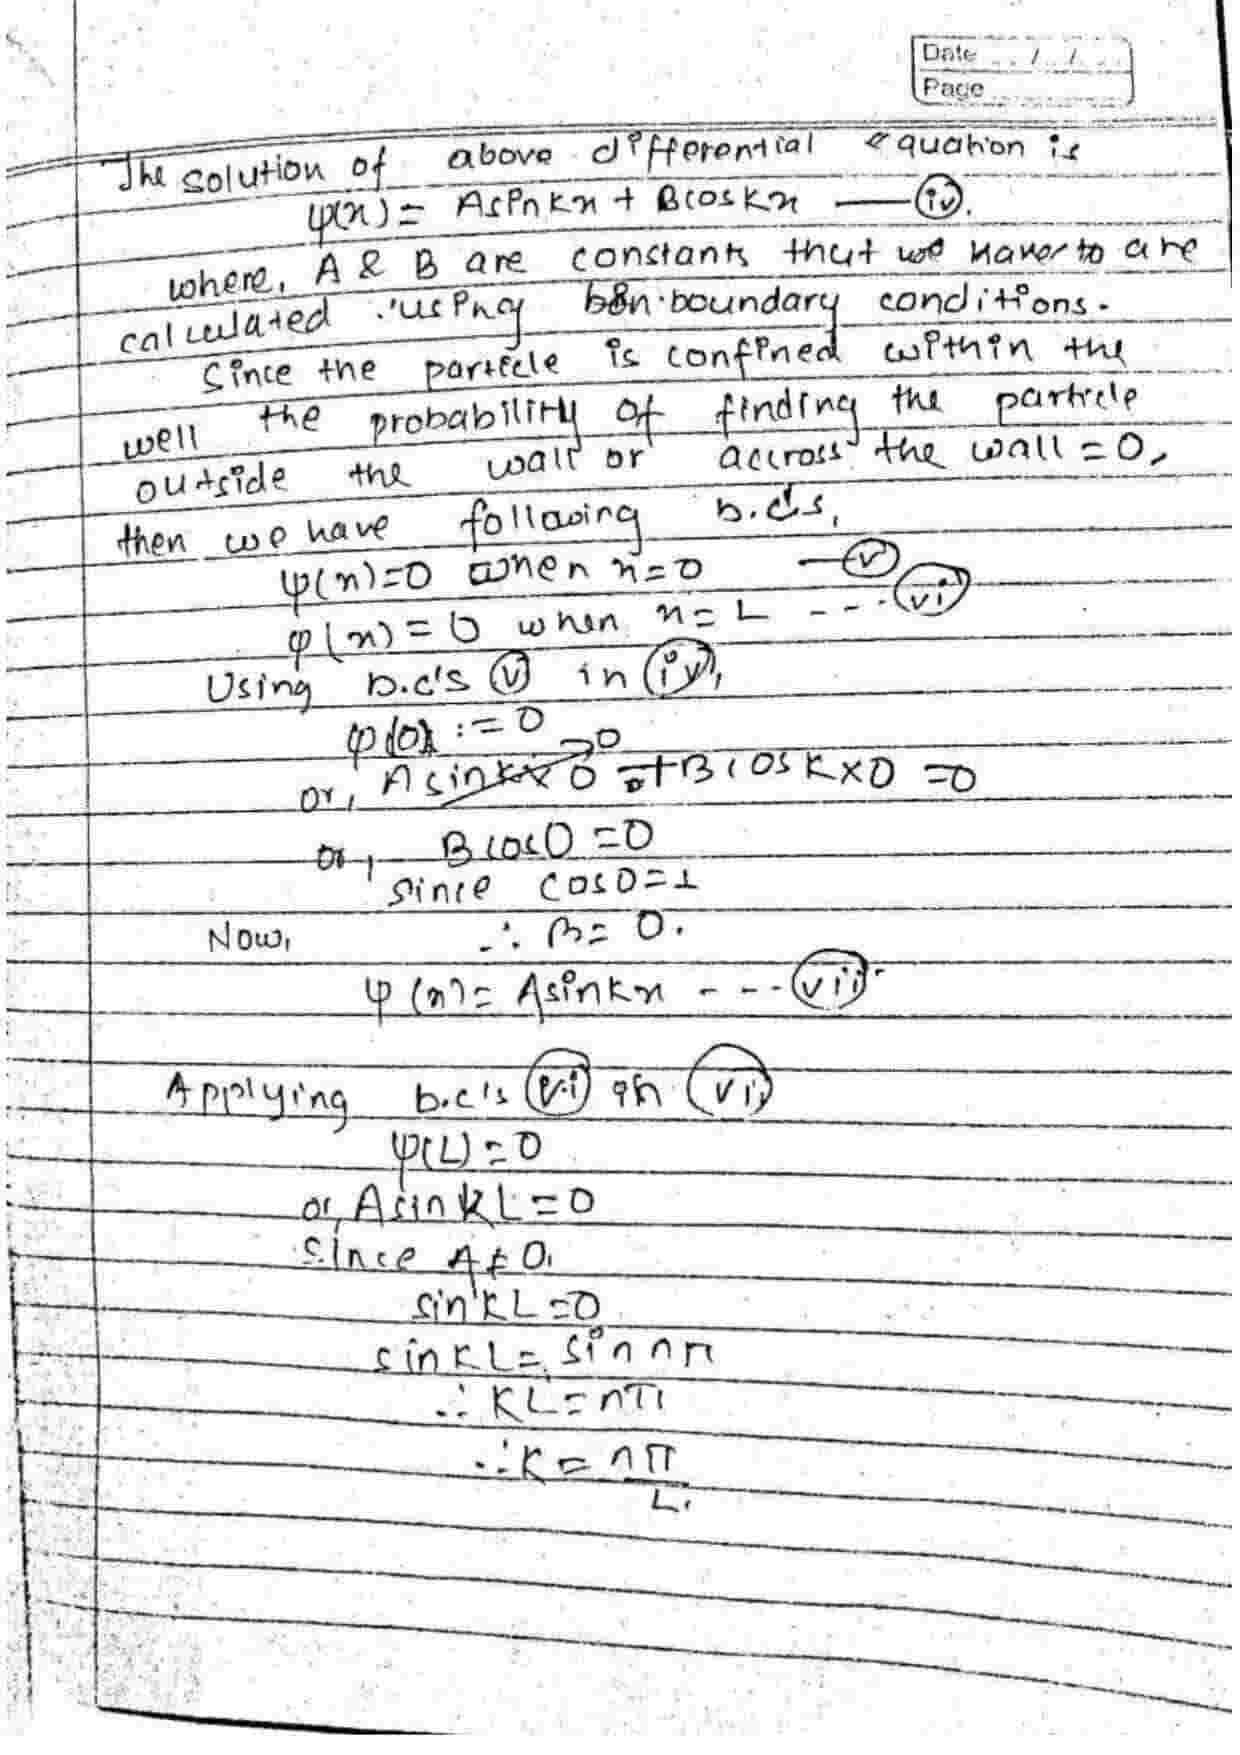 Date ../../...
Page
The solution of above differential equation is
ψ(x) = A sin Kx + B cos Kx —— (iv).
where, A & B are constants that we have to are
calculated using boundary conditions.
Since the particle is confined within the
well the probability of finding the particle
outside the wall or accross the wall = 0,
then we have following b.c's,
ψ(x) = 0 when x = 0 —— (v)
ψ(x) = 0 when x = L --- (vi)
Using b.c's (v) in (iv),
ψ(0) = 0
or, A sin K × 0 → 0 + B cos K × 0 = 0
or, B cos 0 = 0
since cos 0 = 1
Now, ∴ B = 0.
ψ(x) = A sin Kx --- (vii)
Applying b.c's (vi) in (vii)
ψ(L) = 0
or, A sin KL = 0
Since A ≠ 0,
sin KL = 0
sin KL = sin nπ
∴ KL = nπ
∴ K = nπ
L.